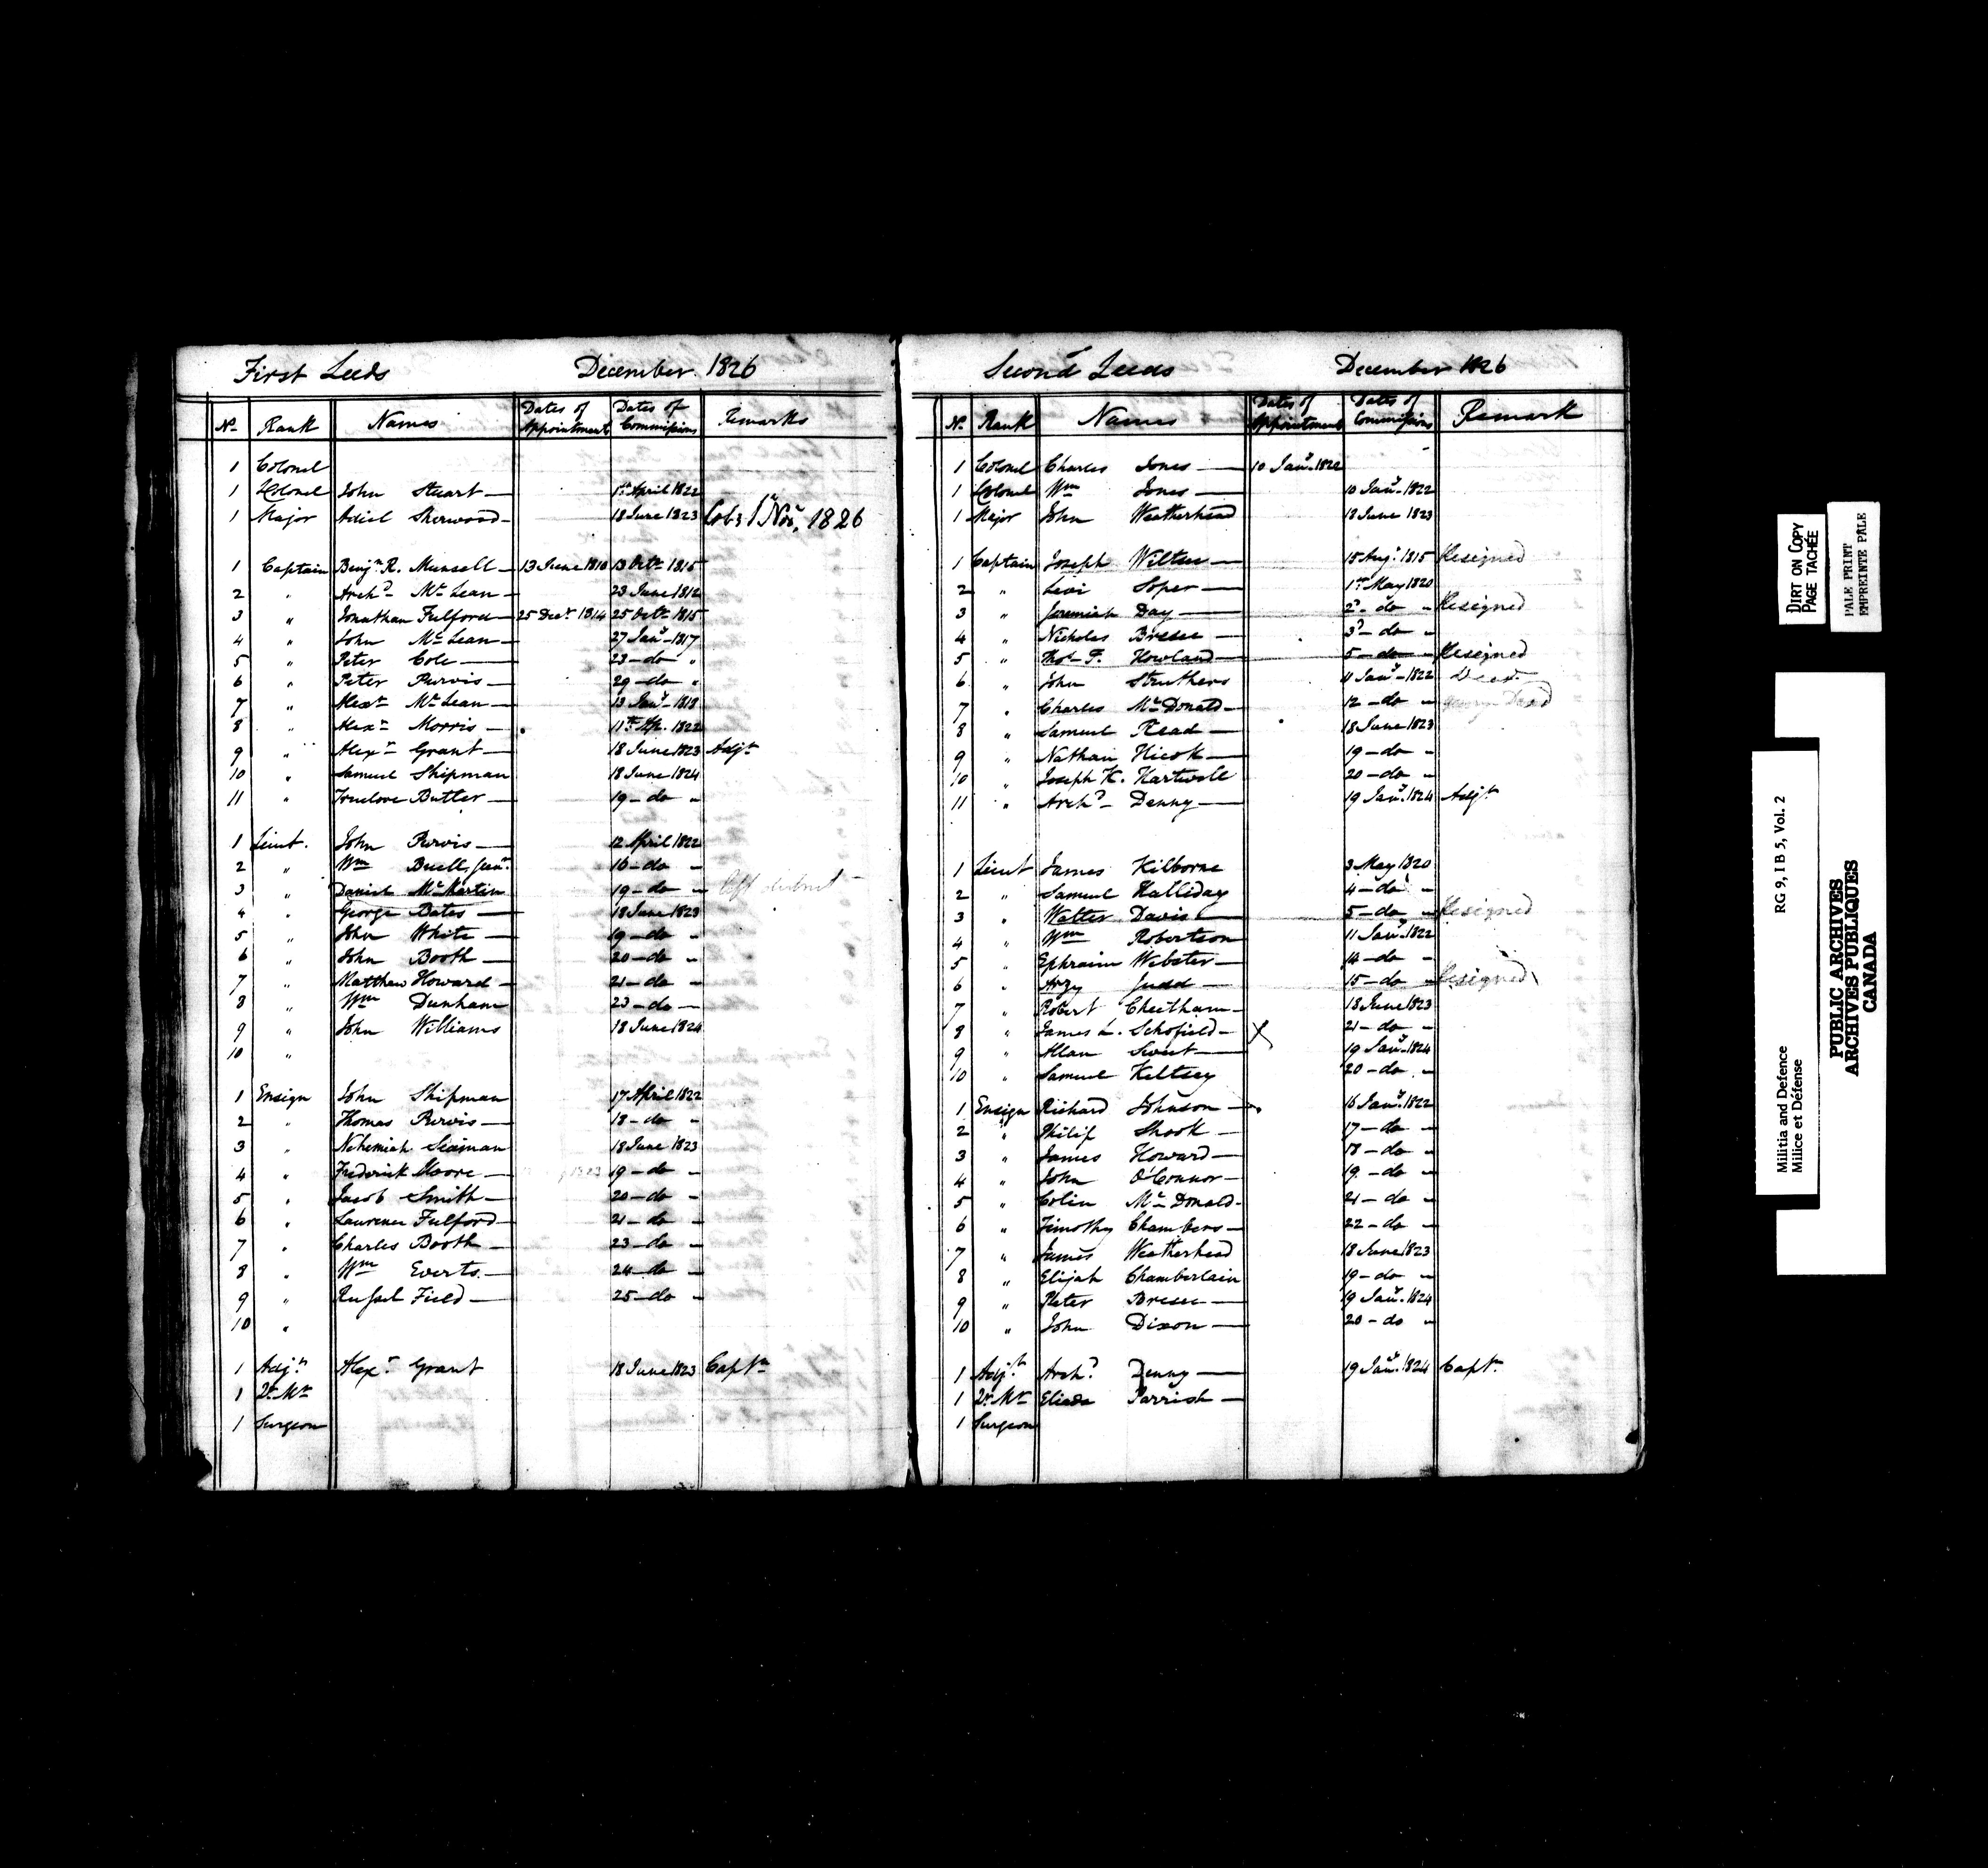 First Leeds December 1826
No. Rank Names Dates of Appointments Dates of Commissions Remarks
1 Colonel
1 Lt Colonel John Stuart — 1st April 1822
1 Major Adiel Sherwood — 18 June 1823 Col: 1st Novr. 1826
1 Captain Benjn. R. Munsell — 13 June 1810 13 Octr. 1815
2 " Archd. McLean — 23 June 1812
3 " Jonathan Fulford — 25 Decr. 1814 25 Octr. 1815
4 " John McLean — 27 Jany. 1817
5 " Peter Cole — 23 — do "
6 " Peter Purvis — 29 — do "
7 " Alexr. McLean — 13 Jany. 1818
8 " Alexr. Morris — 11th Ap. 1822
9 " Alexr. Grant — 18 June 1823 Adjt.
10 " Samuel Shipman 18 June 1824
11 " Truelove Butler — 19 — do "
1 Lieut. John Purvis — 12 April 1822
2 " Wm Buell, Junr. 16 — do "
3 " Daniel McMartin 19 — do " left
4 " George Bates — 18 June 1823
5 " John White — 19 — do "
6 " John Booth — 20 — do "
7 " Matthew Howard — 21 — do "
8 " Wm Dunham 23 — do —
9 " John Williams 18 June 1824
10 "
1 Ensign John Shipman 17 April 1822
2 " Thomas Purvis — 18 — do "
3 " Nehemiah Seaman 18 June 1823
4 " Frederick Moore — 19 — do "
5 " Jacob Smith — 20 — do "
6 " Laurence Fulford — 21 — do "
7 " Charles Booth — 23 — do "
8 " Wm Everts — 24 — do "
9 " Russel Field — 25 — do "
10 "
1 Adjt. Alexr. Grant 18 June 1823 Captn
1 Qr. Mr
1 Surgeon
Second Leeds December 1826
No. Rank Names Dates of Appointment Dates of Commissions Remark
1 Colonel Charles Jones — 10 Jany. 1822
1 Lt Colonel Wm Jones — 10 Jany. 1822
1 Major John Weatherhead 18 June 1823
1 Captain Joseph Wiltse — 15 Augt. 1815 Resigned
2 " Levi Soper — 1st May 1820
3 " Jeremiah Day — 2d — do " Resigned
4 " Nicholas Bresee — 3d — do "
5 " Thos. F. Howland — 5 — do " Resigned
6 " John Struthers 11 Jany. 1822 Dead
7 " Charles McDonald — 12 — do " Dead
8 " Samuel Read — 18 June 1823
9 " Nathan Hicok — 19 — do "
10 " Joseph K. Hartwell 20 — do "
11 " Archd. Denny — 19 Jany. 1824 Adjt.
1 Lieut James Kilborne 3 May 1820
2 " Samuel Halliday 4 — do "
3 " Walter Davis — 5 — do " Resigned
4 " Wm Robertson 11 Jany. 1822
5 " Ephraim Webster — 14 — do "
6 " Arzy Judd — 15 — do " Resigned
7 " Robert Cheetham — 18 June 1823
8 " James L. Schofield — X 21 — do "
9 " Allan Sweet — 19 Jany. 1824
10 " Samuel Keltsey 20 — do "
1 Ensign Richard Johnson — 16 Jany. 1822
2 " Philip Shook — 17 — do "
3 " James Howard — 18 — do "
4 " John O'Connor — 19 — do "
5 " Colin McDonald — 21 — do "
6 " Timothy Chambers — 22 — do "
7 " James Weatherhead 18 June 1823
8 " Elijah Chamberlain 19 — do "
9 " Peter Bresee — 19 Jany. 1824
10 " John Dixon — 20 — do "
1 Adjt. Archd. Denny — 19 Jany. 1824 Captn
1 Qr. Mr Eliada Parrish —
1 Surgeon
DIRT ON COPY
PAGE TACHÉE
PALE PRINT
EMPREINTE PÂLE
Militia and Defence RG 9, I B 5, Vol. 2
Milice et Défense
PUBLIC ARCHIVES
ARCHIVES PUBLIQUES
CANADA